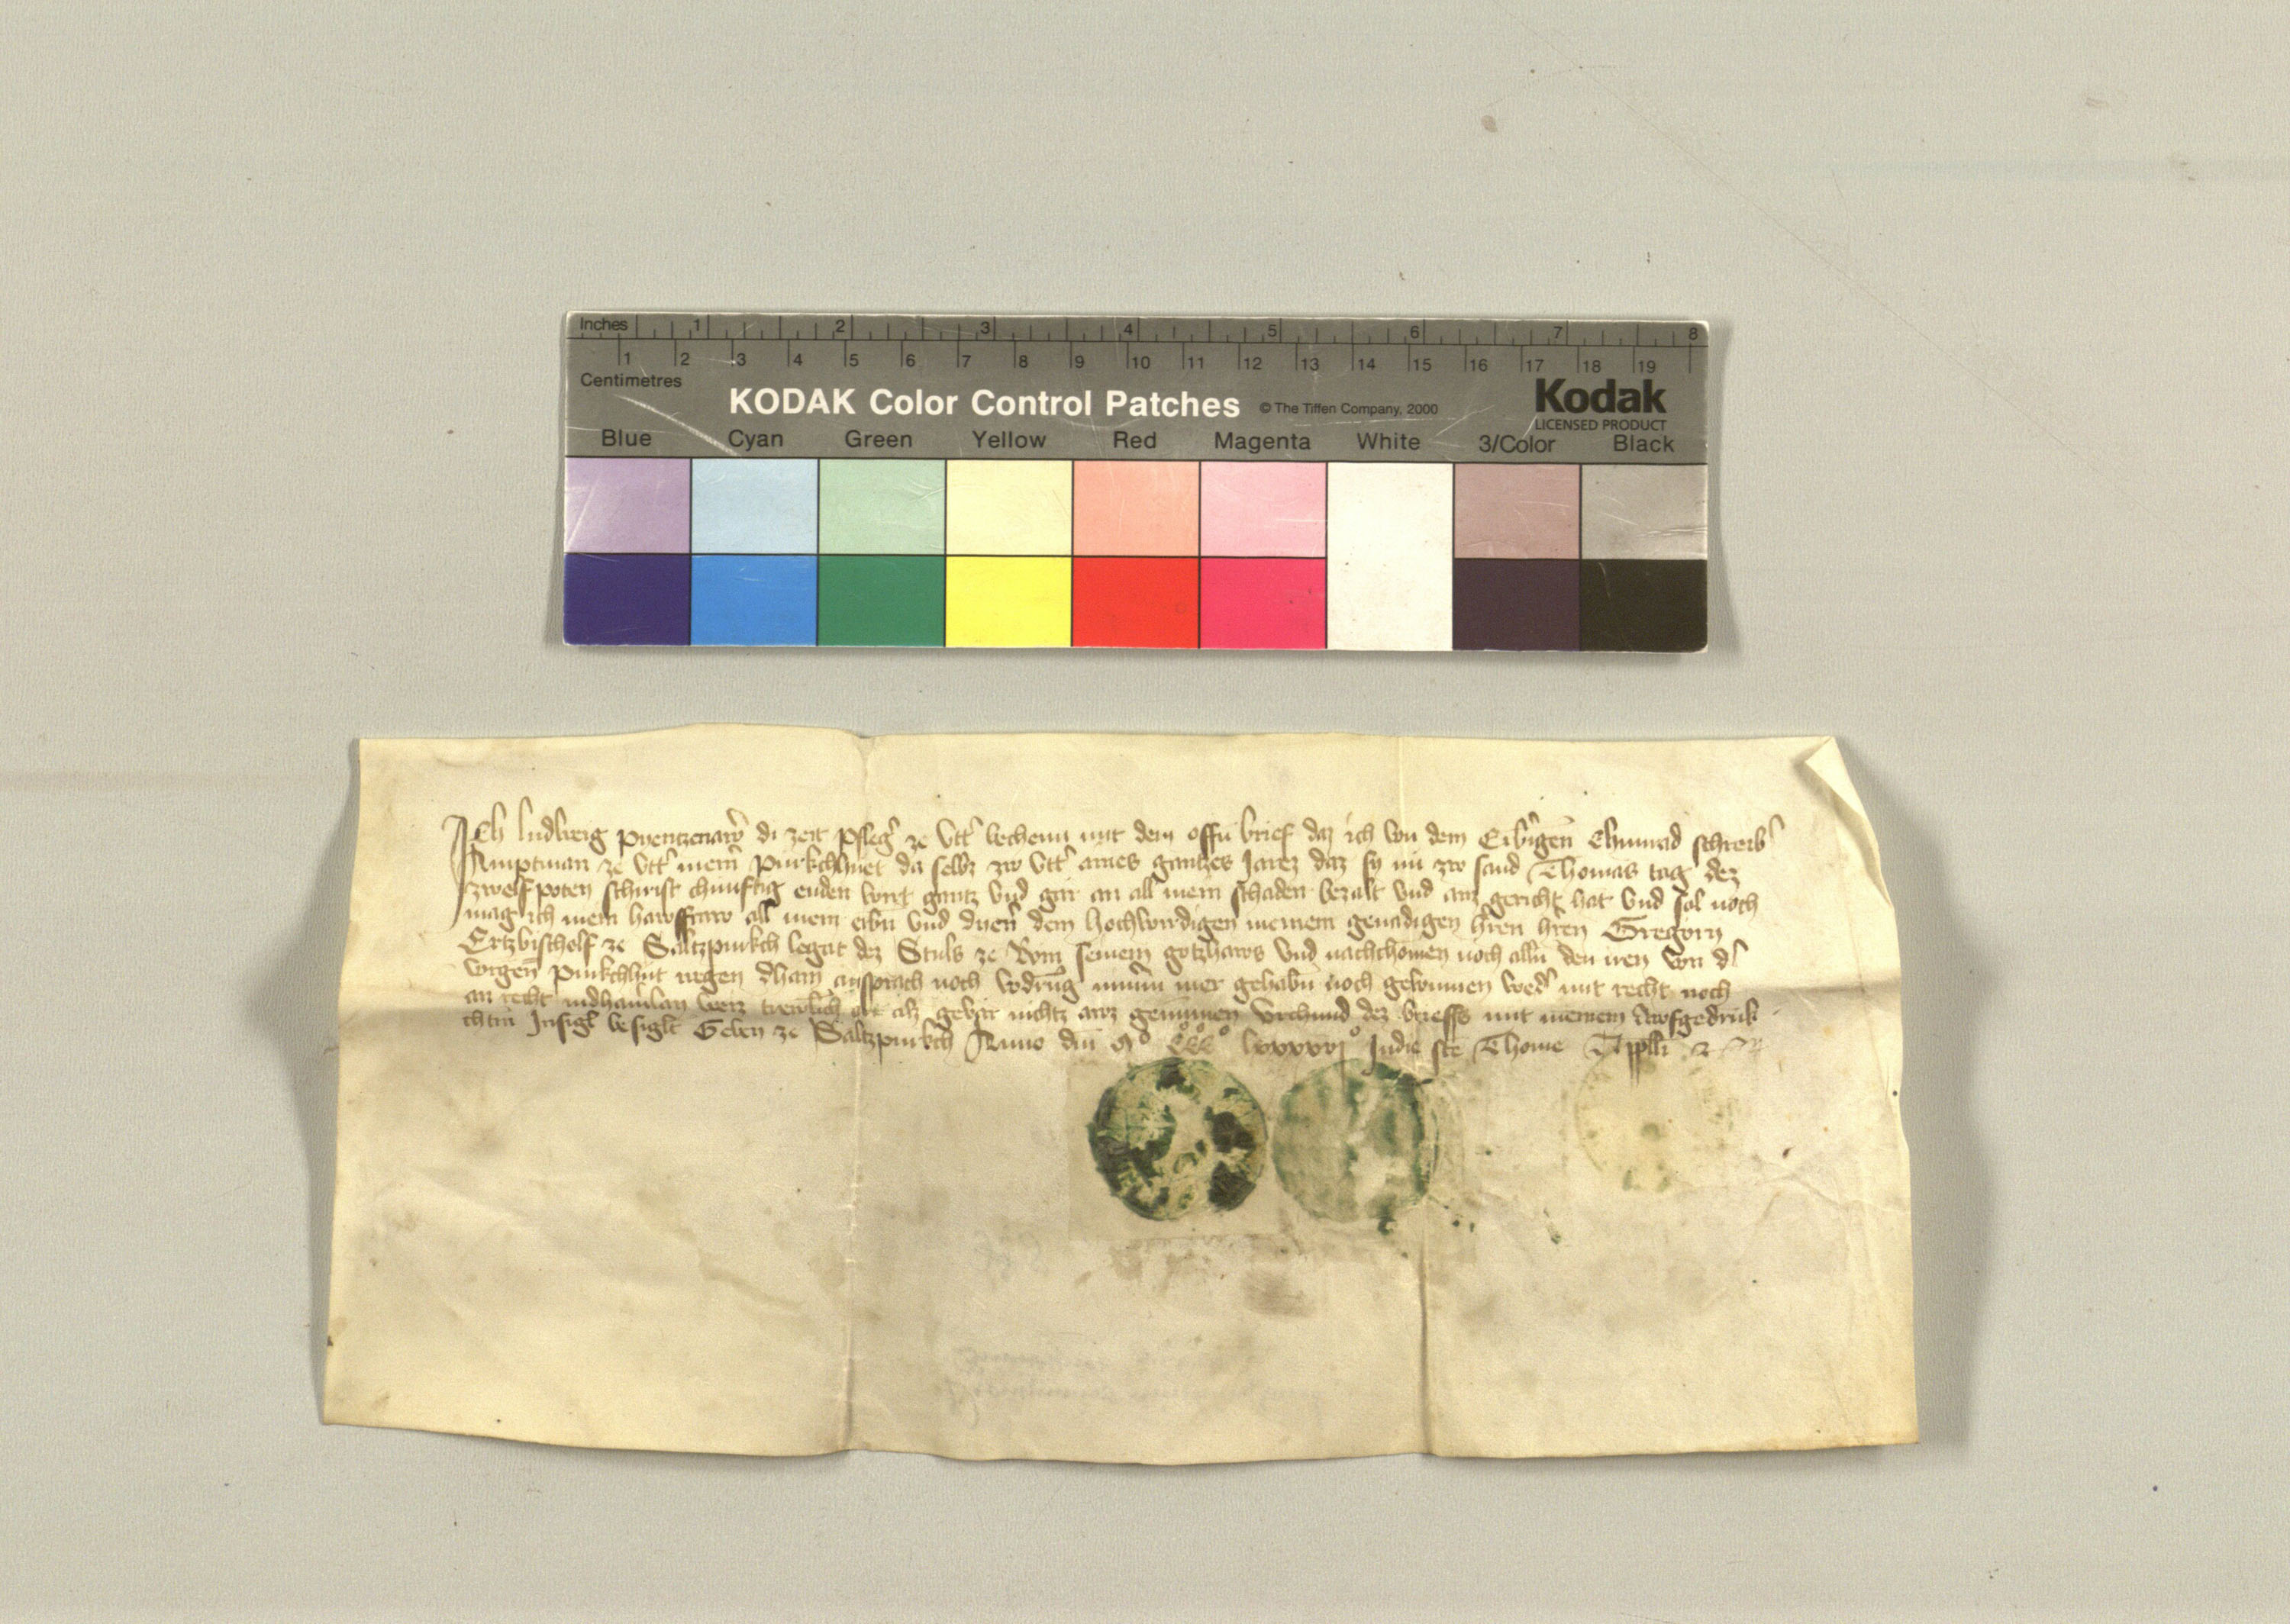 Inches 1 2 3 4 5 6 7 8
1 2 3 4 5 6 7 8 9 10 11 12 13 14 15 16 17 18 19
Centimetres
KODAK Color Control Patches © The Tiffen Company, 2000 Kodak
LICENSED PRODUCT
Blue Cyan Green Yellow Red Magenta White 3/Color Black
Ich ludweig di zeit pfleg ze Utt vechenn mit dem offn brief daz ich von dem Erbrgen Chunrad schreib
Amptman ze Utt meinr purkchhuet da selbz zw Utt aines gantzes Jarez daz sy nu zw sand Thomas tag dez
zwelfpoten schirist chunftig enden wirt gantz und gar an all mein schaden bezalt und auz gericht hat und sol noch
mag ich mein hawsfraw all mein erbn und dem hochwirdigen meinem genadigen hren hren Gregorn
Ertzbischolf ze Saltzpurkch legat dez Stuls ze Rom seinem gotzhaws und nachchomen noch alln den iren von d
wegen purkchhut ansprach noch vodrug nimm mer gehabn noch gewinnen wed mit recht noch
an recht nichtz awz genumen Urchund dez brieffs mit meinem Awfgedruk
chtm Insigl besiglt Geben ze Saltzpurkch Anno dm M° CCC° lxxxxvi° Indie sce Thome Appli